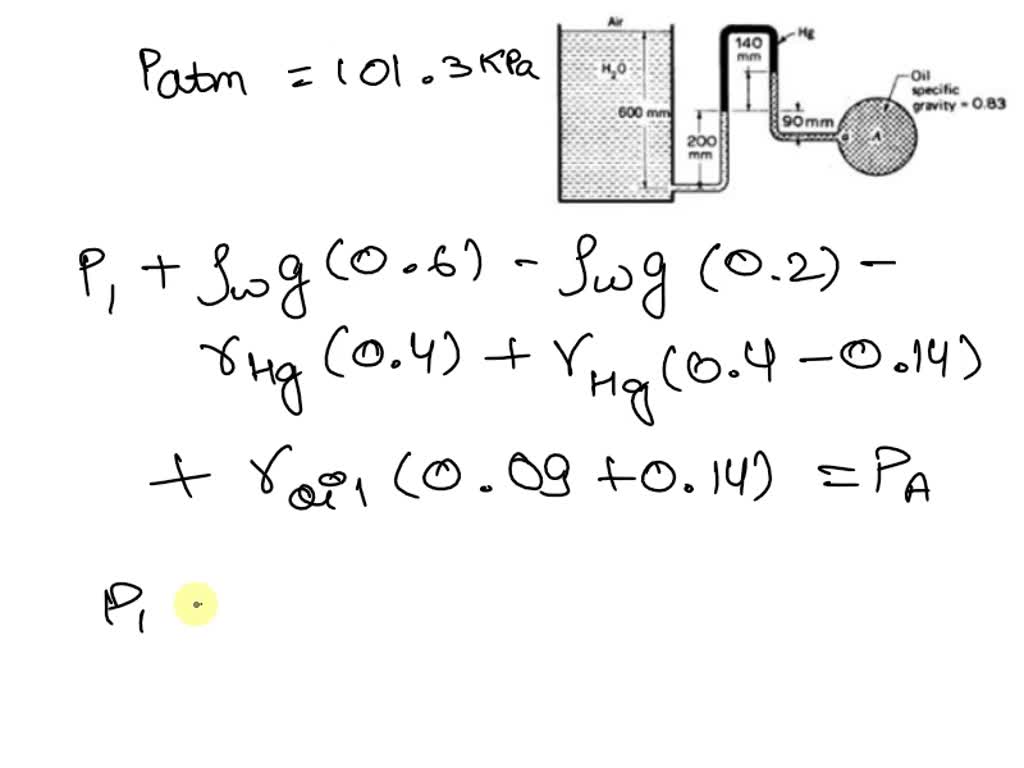 Patm = 101.3 KPa
Air
H₂O
600 mm
200
mm
140
mm
Hg
90 mm
Oil
specific
gravity = 0.83
a
A
P₁ + ρwg (0.6) - ρwg (0.2) -
γHg (0.4) + γHg (0.4 - 0.14)
+ γoil (0.09 + 0.14) = PA
P₁